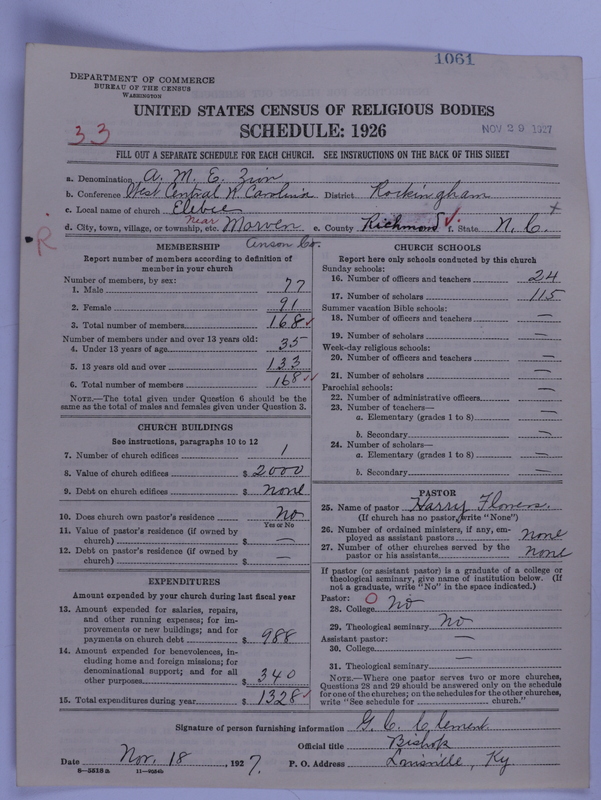 1061
DEPARTMENT OF COMMERCE
BUREAU OF THE CENSUS
WASHINGTON
UNITED STATES CENSUS OF RELIGIOUS BODIES
33
SCHEDULE: 1926
NOV 29 1927
FILL OUT A SEPARATE SCHEDULE FOR EACH CHURCH. SEE INSTRUCTIONS ON THE BACK OF THIS SHEET
a. Denomination A. M. E. Zion
b. Conference West Central N. Carolina District Rockingham
c. Local name of church
R
d. City, town, village, or township, etc. near Morven e. County Richmond f. State N. C.
Anson Co.
MEMBERSHIP
Report number of members according to definition of
member in your church
Number of members, by sex:
1. Male 77
2. Female 91
3. Total number of members 168
Number of members under and over 13 years old:
4. Under 13 years of age 35
5. 13 years old and over 133
6. Total number of members 168
NOTE.—The total given under Question 6 should be
same as the total of males and females given under Question 3.
CHURCH BUILDINGS
See instructions, paragraphs 10 to 12
7. Number of church edifices 1
8. Value of church edifices $ 2000
9. Debt on church edifices $ none
10. Does church own pastor's residence no
Yes or No
11. Value of pastor's residence (if owned by
church) $ —
12. Debt on pastor's residence (if owned by
church) $ —
EXPENDITURES
Amount expended by your church during last fiscal year
13. Amount expended for salaries, repairs,
and other running expenses; for im-
provements or new buildings; and for
payments on church debt $ 988
14. Amount expended for benevolences, in-
cluding home and foreign missions; for
denominational support; and for all
other purposes $ 340
15. Total expenditures during year $ 1328
CHURCH SCHOOLS
Report here only schools conducted by this church
Sunday schools:
16. Number of officers and teachers 24
17. Number of scholars 115
Summer vacation Bible schools:
18. Number of officers and teachers —
19. Number of scholars —
Week-day religious schools:
20. Number of officers and teachers —
21. Number of scholars —
Parochial schools:
22. Number of administrative officers —
23. Number of teachers—
a. Elementary (grades 1 to 8) —
b. Secondary —
24. Number of scholars—
a. Elementary (grades 1 to 8) —
b. Secondary —
PASTOR
25. Name of pastor Harry Flowers.
(If church has no pastor, write "None")
26. Number of ordained ministers, if any, em-
ployed as assistant pastors none
27. Number of other churches served by the
pastor or his assistants none
If pastor (or assistant pastor) is a graduate of a college or
theological seminary, give name of institution below. (If
not a graduate, write "No" in the space indicated.)
Pastor: O
28. College No
29. Theological seminary No
Assistant pastor: —
30. College
31. Theological seminary —
NOTE.—Where one pastor serves two or more churches,
Questions 28 and 29 should be answered only on the schedule
for one of the churches; on the schedules for the other churches,
write "See schedule for church."
Signature of person furnishing information G. C. Clement
Official title Bishop
Date Nov. 18, 1927. P. O. Address Louisville, Ky